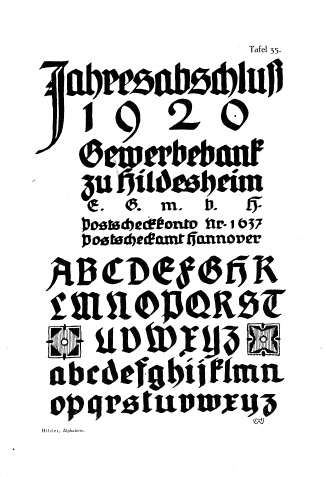 Tafel 35.
Jahresabschluß
1920
Gewerbebank
zu Hildesheim
E. G. m. b. H.
Postscheckkonto Nr. 1637
Postscheckamt Hannover
ABCDEFGHK
LMNOPQRST
UVWXYZ
abcdefghijklmn
opqrstuvwxyz
Hilder, Alphabete.